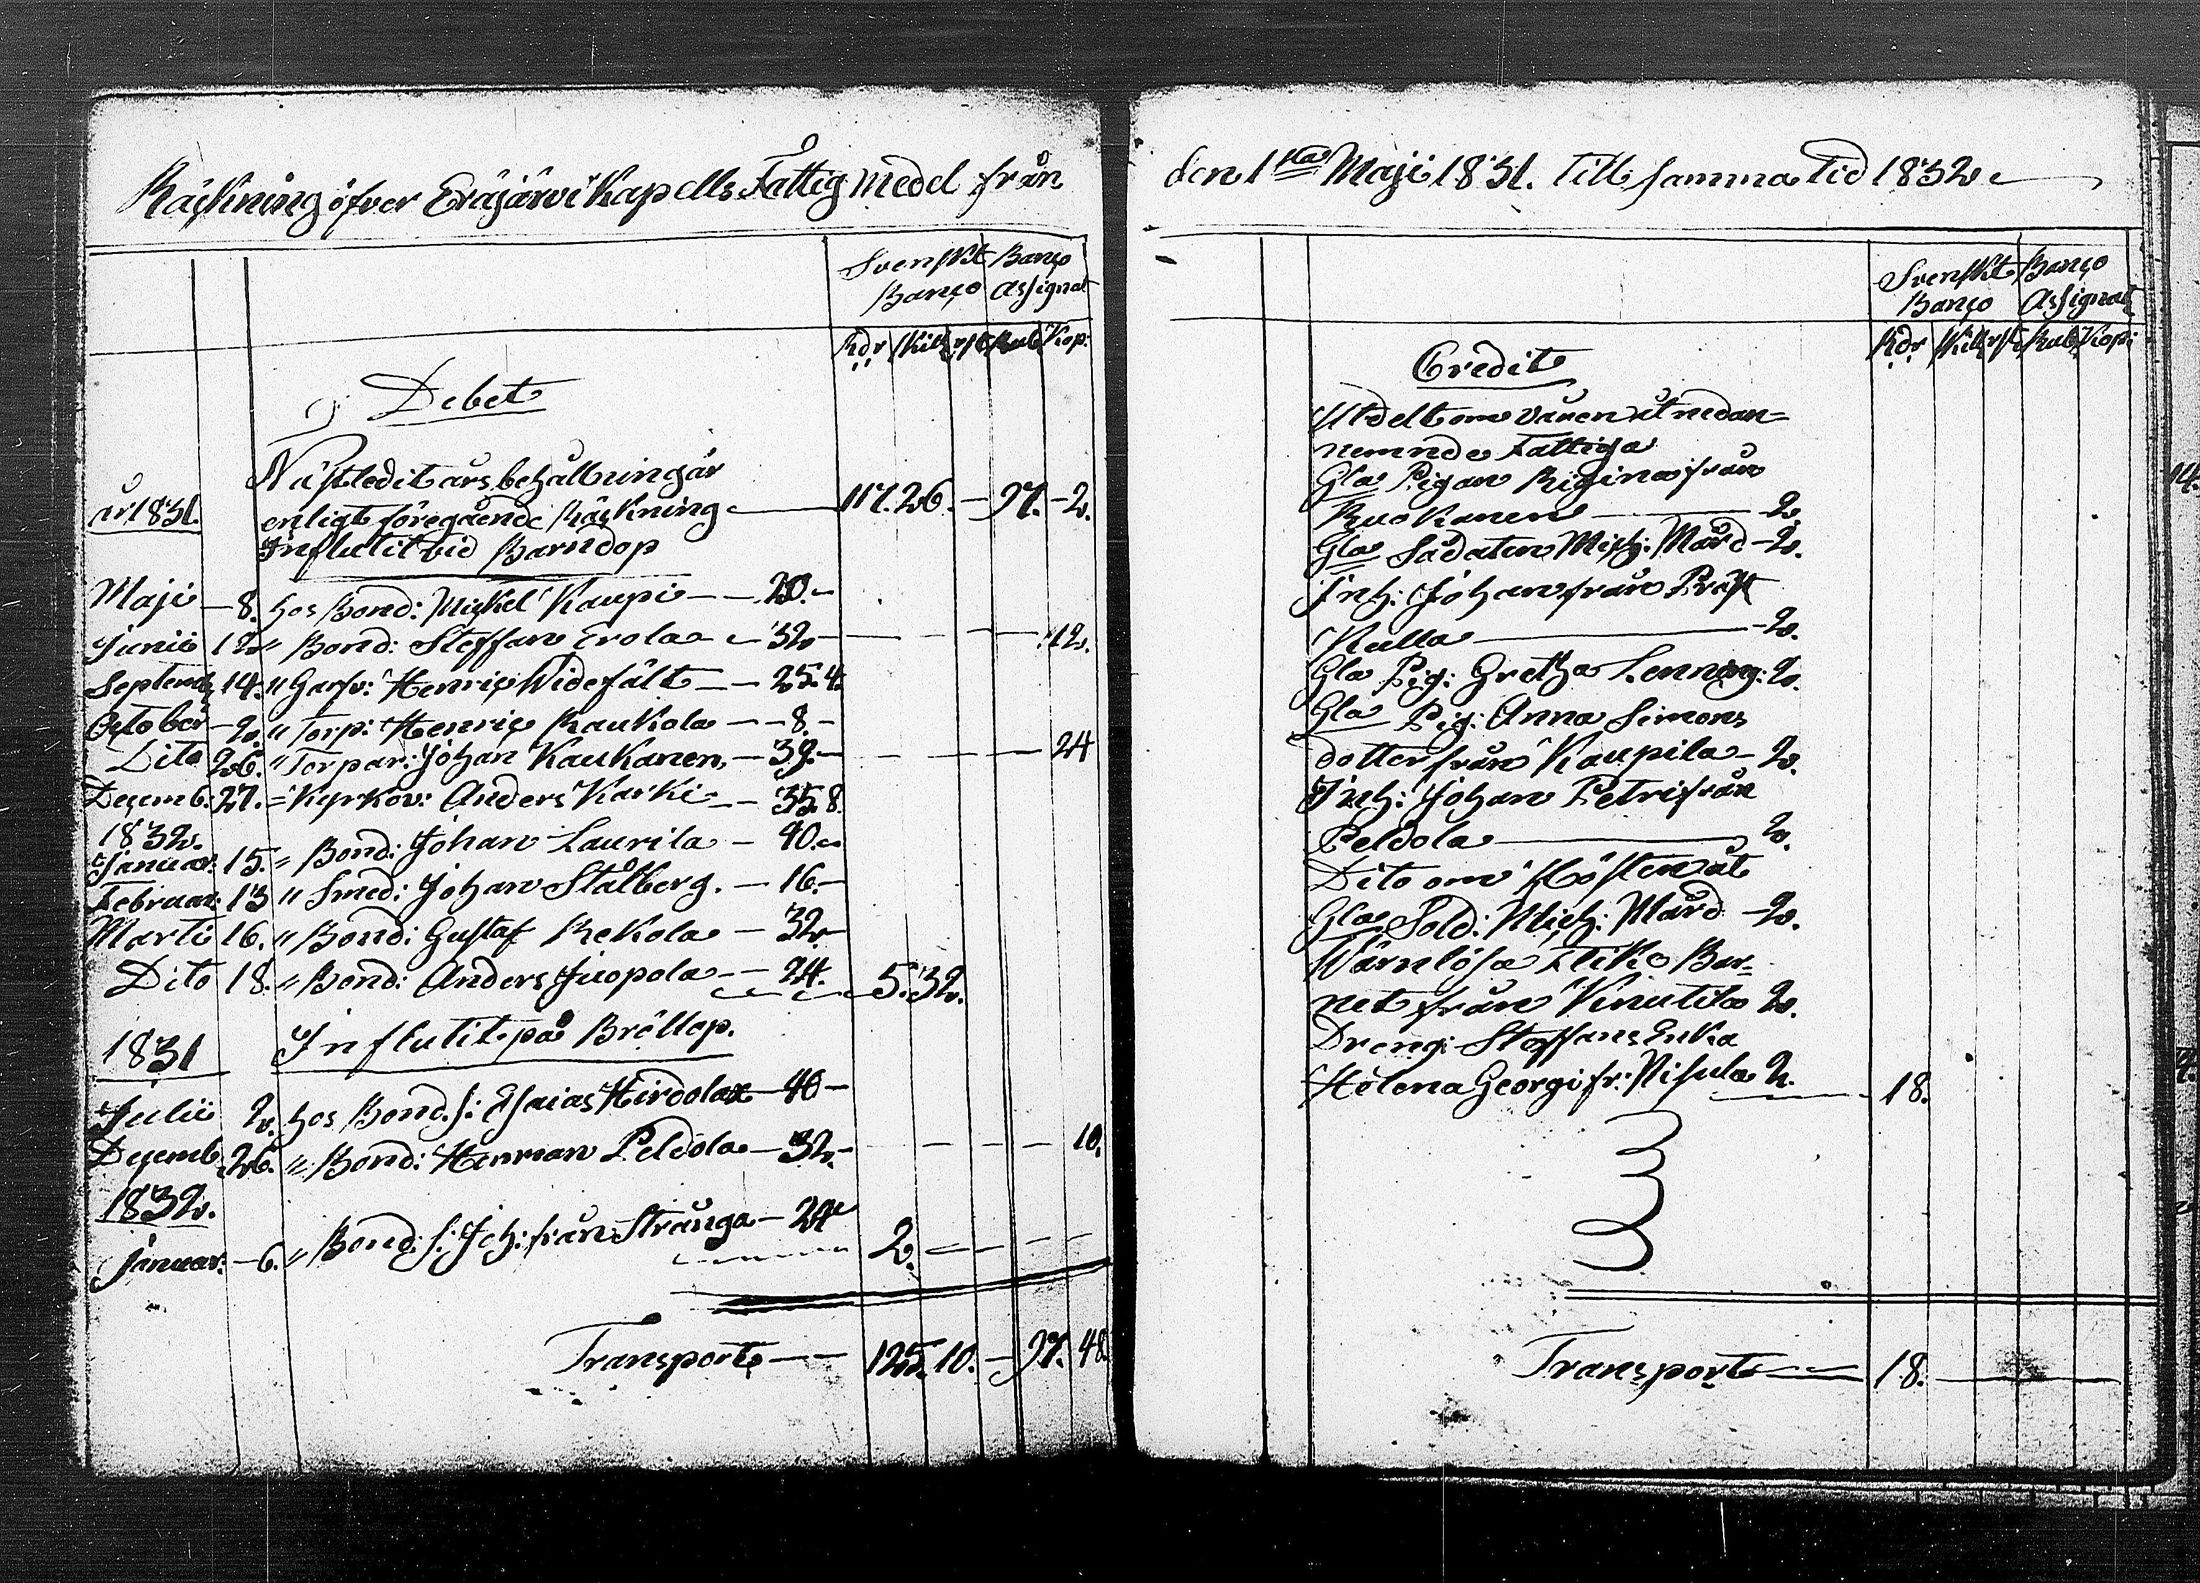 Räkning öfver Eräjärvi Kapells Fattigmedel från
Svenskt Banco
Banco Assignat
Rdr Skill: rst. Rub. Kop:
Debet
Nästledit års behållning är
år 1831. enligt föregående Räkning 117. 26. — 97. — 2.
Influtit vid Barndop
Maji — 8. hos Bond: Mickel Kaupi — 20. —
Junii 12 " Bond: Steffan Erola — 32 — — — — 12.
Septemb. 14. " Garfv: Henric Widefält — 25. 4.
October — 2. " Torp: Henric Raukola — 8. —
Dito 26. " Torpar: Johan Kaukanen — 39. — — — — 24
Decemb: 27. = Kyrkov: Anders Karki — 35. 8.
1832.
Januar: 15. " Bond: Johan Laurila — 40. —
Februar: 13 " Smed: Johan Stålberg. — 16. —
Marti 16. " Bond: Gustaf Rekola — 32 —
Dito 18. " Bond: Anders Juopola — 24. — 5. 32.
Influtit på Bröllop.
1831
Julii 2. hos Bond. s: Esaias Hirdola — 40 —
Decemb 26. " Bond: Herman Peldola — 32. — — — — 10.
1832.
Januar: — 6. " Bond: s: Joh: från Stränga — 24
2. — — — —
Transport — 125. 10. — 97. 48.
den 1sta Maji 1831. till samma tid 1832.
Svenskt Banco
Banco Assignat
Rdr Skill rst. Rub. Kopi
Credit
Utdelt om våren åt nedan=
nemnde Fattiga
Gla Pigan Regina från
Ruokanen — 2.
Gla Sådaten Mich: Mård — 2.
Inh: Johan från Präst
Kulla — 2.
Gla Pig: Gretha Lenning: 2.
Gla Pig: Anna Simons
dotter från Kaupila — 2.
Inh: Johan Petri från
Peldola — 2.
Dito om Hösten åt
Gla Sold: Mich: Mård — 2.
Wärnlösa Flicko Bar=
net från Knutila 2.
Dreng: Steffans Enka
Helena Georgi fr: Nisula 2. — 18.
Transport — 18. —